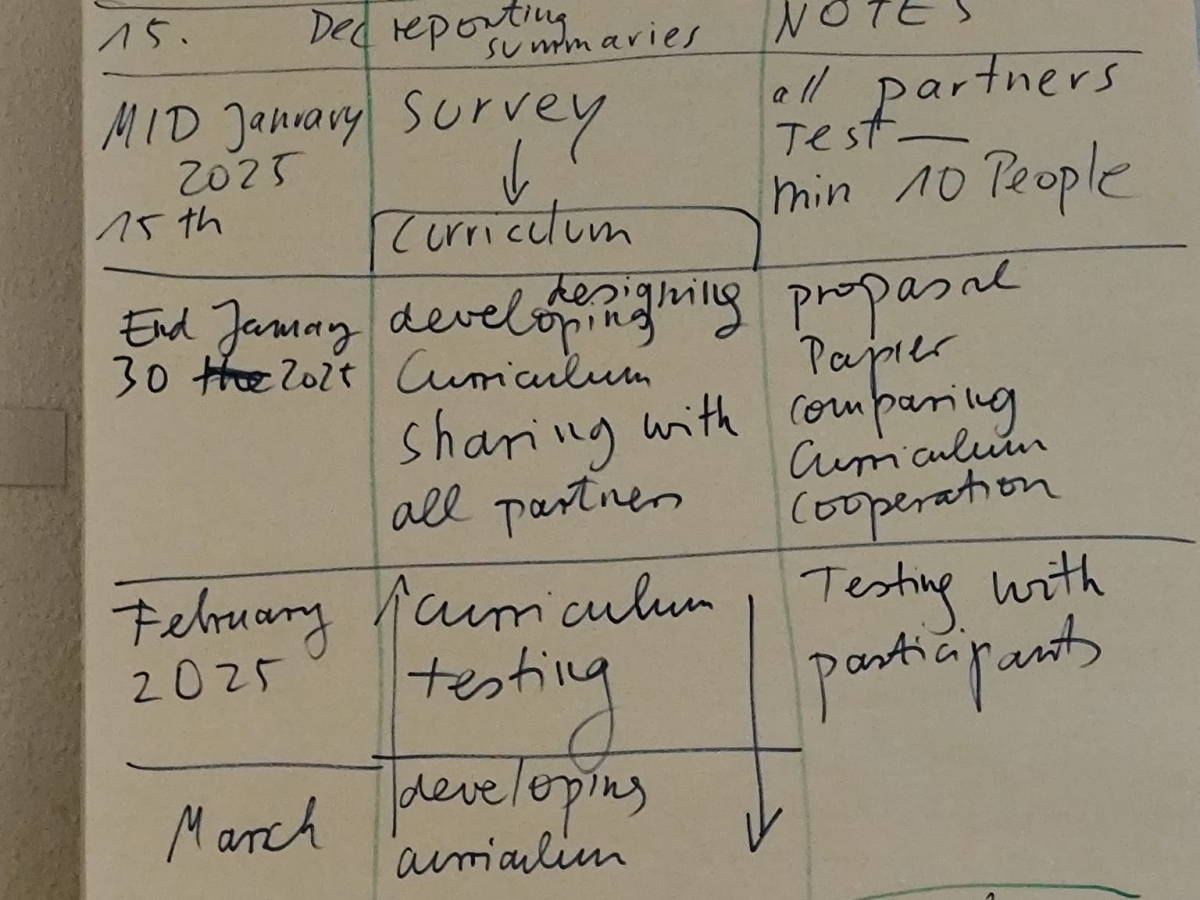 15. Dec reporting summaries NOTES
MID January 2025 15th
survey
curriculum
all partners
Test —
min 10 People
End January
30 2025
designing
developing
Curriculum
sharing with
all partners
propasal
Papier
comparing
Curriculum
cooperation
February
2025
curriculum
testing
Testing with
participants
March
developing
curriculum